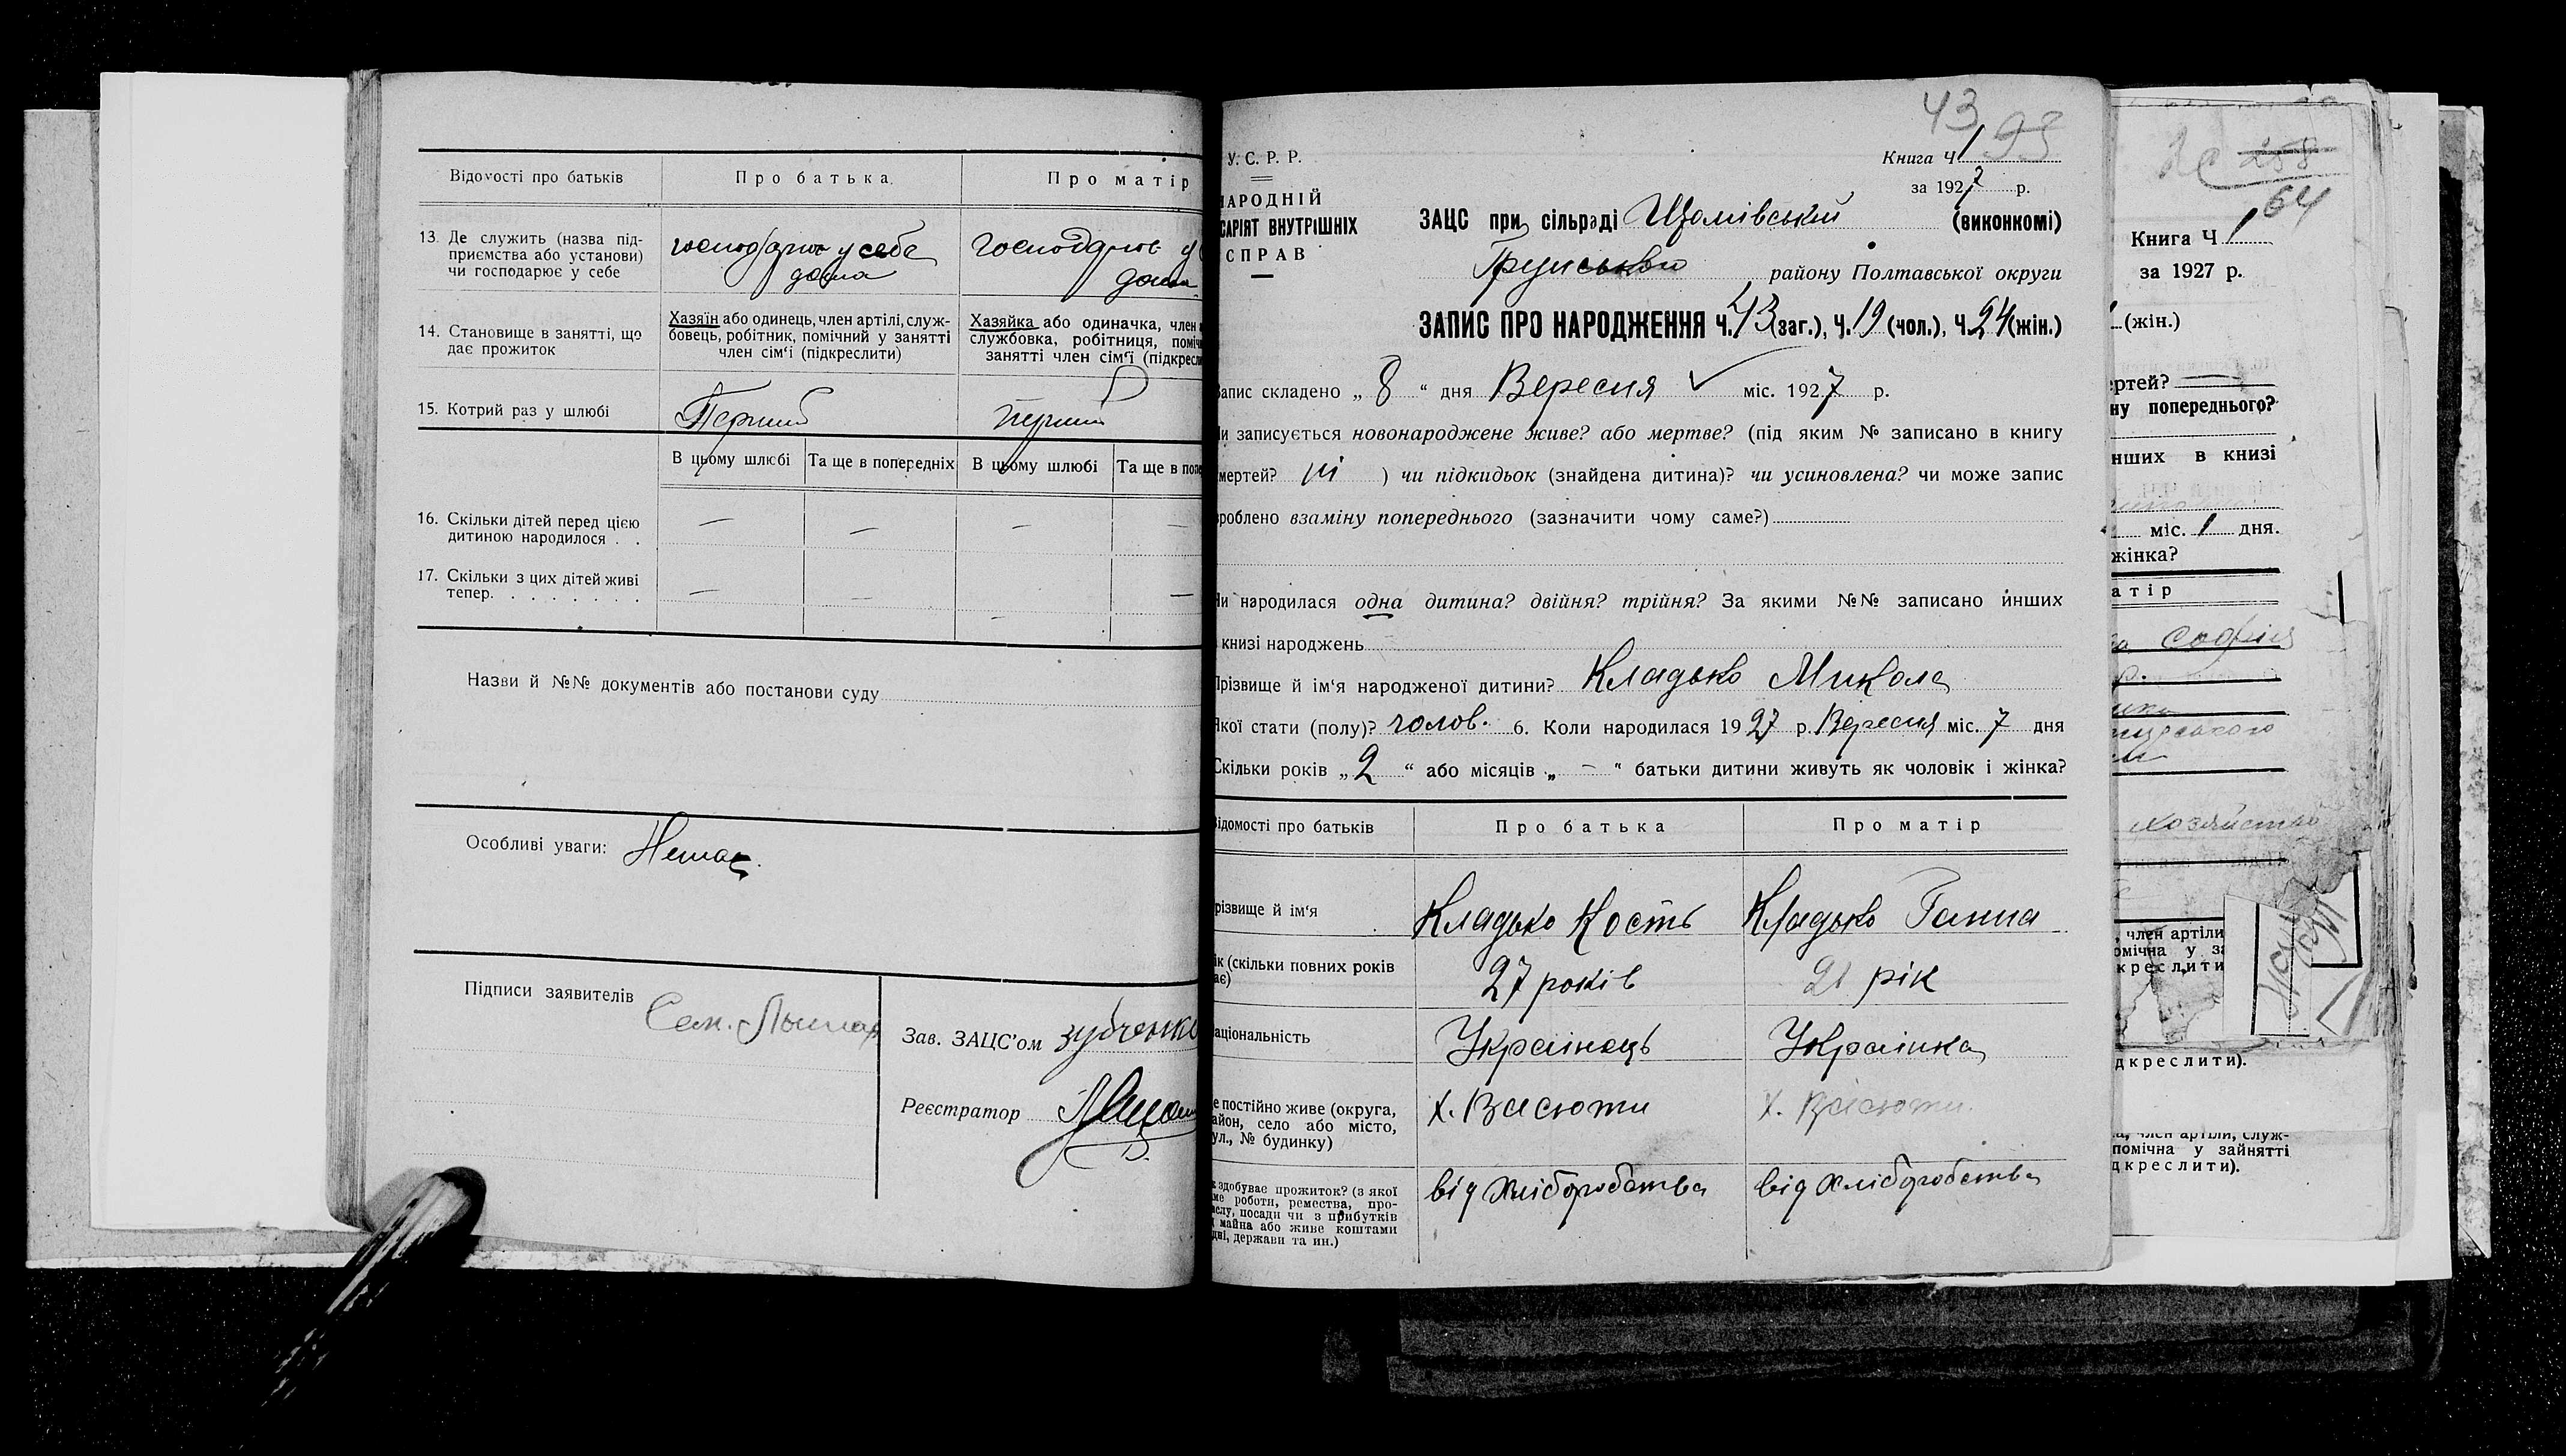 Відомості про батьків
Про батька
Про матір
13. Де служить (назва під-
приємства або установи)
чи господарює у себе
господарює у себе
дома
господарює у
дома
14. Становище в занятті, що
дає прожиток
Хазяїн або одинець, член артілі, служ-
бовець, робітник, помічний у занятті
член сім'ї (підкреслити)
Хазяйка або одиначка, член
службовка, робітниця, поміч
занятті член сім'ї (підкресл
15. Котрий раз у шлюбі
Перший
перший
В цьому шлюбі
Та ще в попередніх
В цьому шлюбі
Та ще в попе
16. Скільки дітей перед цією
дитиною народилося . .
— — — —
17. Скільки з цих дітей живі
тепер. . . . . . . .
— — — —
Назви й №№ документів або постанови суду
Особливі уваги: Немає.
Підписи заявителів
Зав. ЗАЦС'ом Зубченко
Реєстратор
43
93
У. С. Р. Р.
Книга Ч 1
за 1927 р.
НАРОДНІЙ
САРІЯТ ВНУТРІШНІХ
СПРАВ
ЗАЦС при сільраді (виконкомі)
району Полтавської округи
ЗАПИС ПРО НАРОДЖЕННЯ Ч. 43 (заг.), Ч. 19 (чол.), Ч. 24 (жін.)
Запис складено „ 8 “ дня Вересня міс. 1927 р.
и записується новонароджене живе? або мертве? (під яким № записано в книгу
мертей? ні ) чи підкидьок (знайдена дитина)? чи усиновлена? чи може запис
роблено взаміну попереднього (зазначити чому саме?)
Чи народилася одна дитина? двійня? трійня? За якими №№ записано инших
книзі народжень
Прізвище й ім'я народженої дитини? Кладько Микола
Якої стати (полу)? чолов. 6. Коли народилася 1927 р. Вересня міс. 7 дня
Скільки років „ 2 “ або місяців „ – “ батьки дитини живуть як чоловік і жінка?
Відомості про батьків
Про батька
Про матір
різвище й ім'я
Кладько Кость
Кладько Ганна
ік (скільки повних років
ає)
27 років
21 рік
аціональність
Українець
Українка
е постійно живе (округа,
айон, село або місто,
ул., № будинку)
х. Васюти
х. Васюти
к здобуває прожиток? (з якої
ме роботи, ремества, про-
ислу, посади чи з прибутків
д майна або живе коштами
дні, держави та ин.)
від хліборобства
від хліборобства
64
Книга Ч 1
за 1927 р.
(жін.)
ертей?
ну попереднього?
нших в книзі
міс. 1 дня.
жінка?
атір
Софія
хозяйство
, член артіли
омічна у за
креслити
дкреслити).
а, член артіли, служ-
помічна у зайнятті
дкреслити).